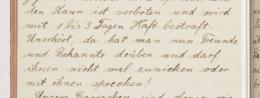 den Haun ist verboten und wird
mit 1 bis 3 Tagen Haft bestraft.
Unerhört, da hat man nun Freunde
und Bekannte drüben und darf
ihnen nicht mal zunicken oder
mit ihnen sprechen!
Unsere sind